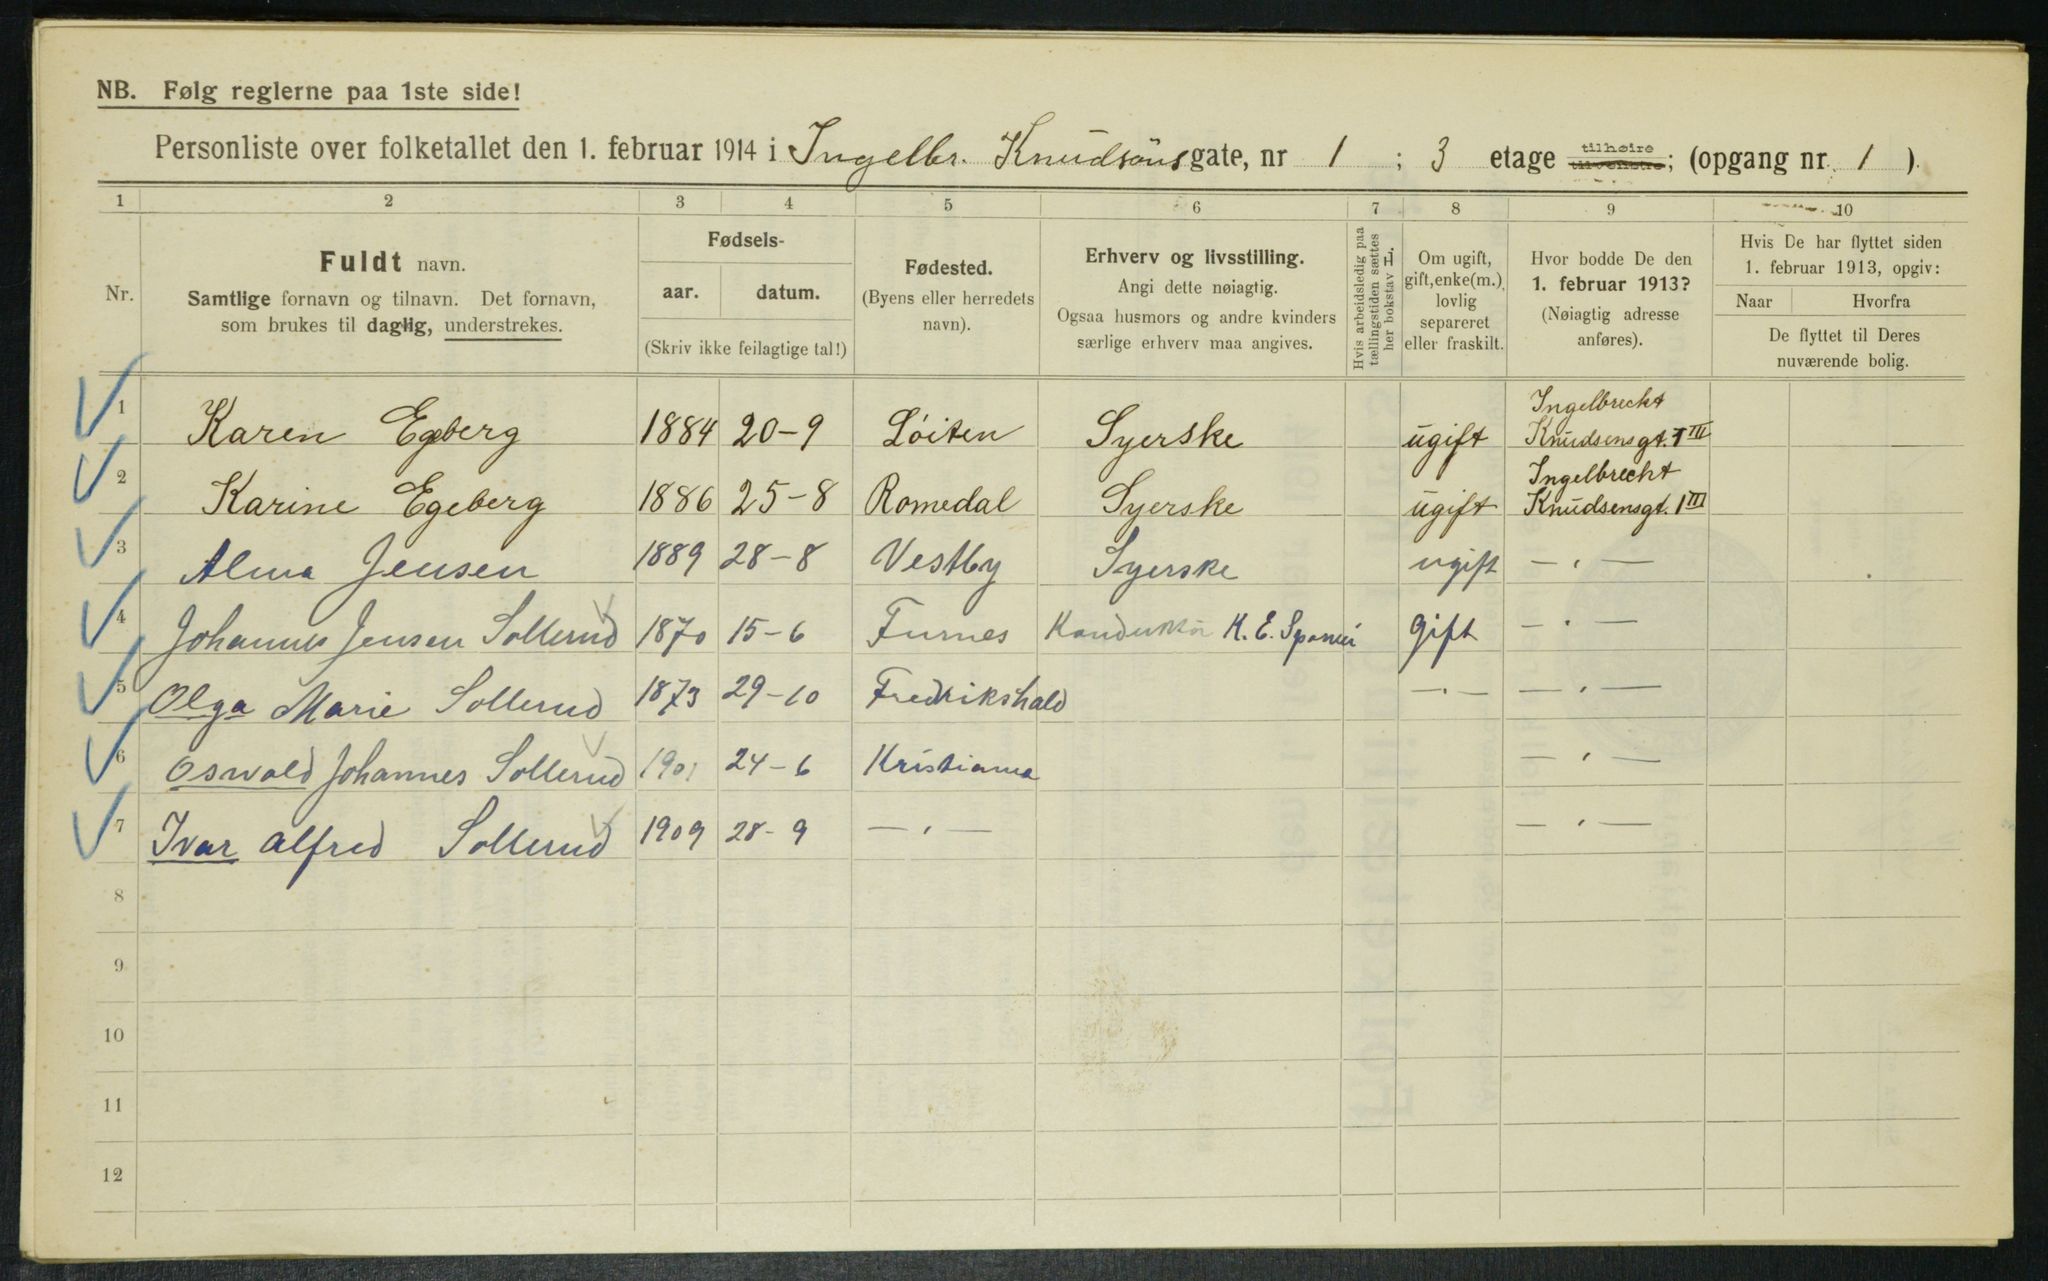 NB. Følg reglerne paa 1ste side!
Personliste over folketallet den 1. februar 1914 i Ingelbr. Knudsöns gate, nr 1 ; 3 etage tilhøire tilvenstre; (opgang nr. 1 ).
1 2 3 4 5 6 7 8 9 10
Nr.
Fuldt navn.
Samtlige fornavn og tilnavn. Det fornavn,
som brukes til daglig, understrekes.
Fødsels-
aar. datum.
(Skriv ikke feilagtige tal!)
Fødested.
(Byens eller herredets
navn).
Erhverv og livsstilling.
Angi dette nøiagtig.
Ogsaa husmors og andre kvinders
særlige erhverv maa angives.
Hvis arbeidsledig paa
tællingstiden sættes
her bokstav L.
Om ugift,
gift, enke(m.),
lovlig
separeret
eller fraskilt.
Hvor bodde De den
1. februar 1913?
(Nøiagtig adresse
anføres).
Hvis De har flyttet siden
1. februar 1913, opgiv:
Naar Hvorfra
De flyttet til Deres
nuværende bolig.
1 Karen Egeberg 1884 20-9 Löiten Syerske ugift Ingelbrecht
Knudsensgt. 1 III
2 Karine Egeberg 1886 25-8 Romedal Syerske ugift Ingelbrecht
Knudsensgt. 1 III
3 Alma Jensen 1889 28-8 Vestby Syerske ugift — " —
4 Johannes Jensen Sollerud 1870 15-6 Furnes Konduktör K. E. Sporvei gift — " —
5 Olga Marie Sollerud 1873 29-10 Fredrikshald — " — — " —
6 Oswald Johannes Sollerud 1901 24-6 Kristiania — " —
7 Ivar Alfred Sollerud 1909 28-9 — " — — " —
8
9
10
11
12